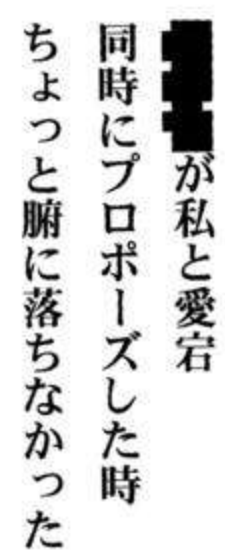 が私と愛宕
同時にプロポーズした時
ちょっと腑に落ちなかった